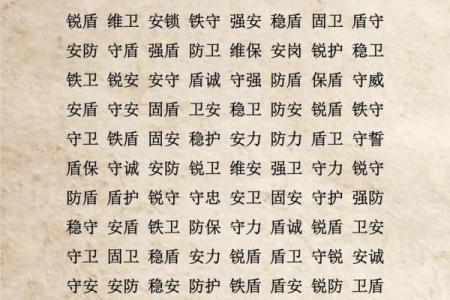 锐盾 维卫 安锁 铁守 强安 稳盾 固卫 盾守
安防 守盾 强盾 防卫 维保 安岗 锐护 稳卫
铁卫 锐安 安守 盾诚 守强 防盾 保盾 守威
安盾 守安 固盾 卫安 稳卫 防安 锐盾 铁守
守卫 铁盾 固安 稳护 安力 防力 盾卫 守誓
盾保 守诚 安防 锐卫 维安 强卫 守力 锐守
防盾 盾护 锐守 守忠 安卫 固安 守护 强防
稳守 安盾 铁卫 防保 守力 盾诚 锐盾 卫安
守卫 固卫 稳盾 安力 锐盾 盾卫 守锐 安诚
守安 安防 稳安 防护 铁盾 盾安 锐防 卫盾